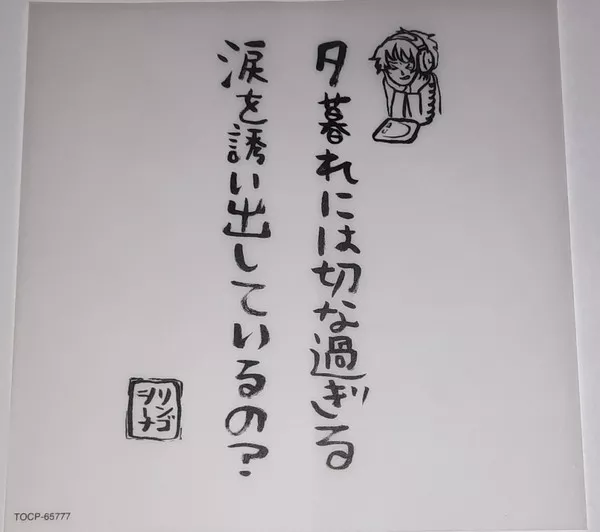 夕暮れには切な過ぎる
涙を誘い出しているの?
リンゴ
シーナ
TOCP-65777